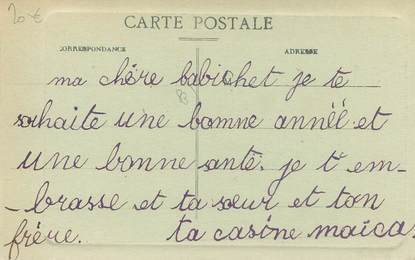 20 €
CARTE POSTALE
CORRESPONDANCE ADRESSE
ma chère babichet je te
souhaite une bomne annéé et
une bonne santé. je t'em-
-brasse et ta sœur et ton
frère. ta casine maica.